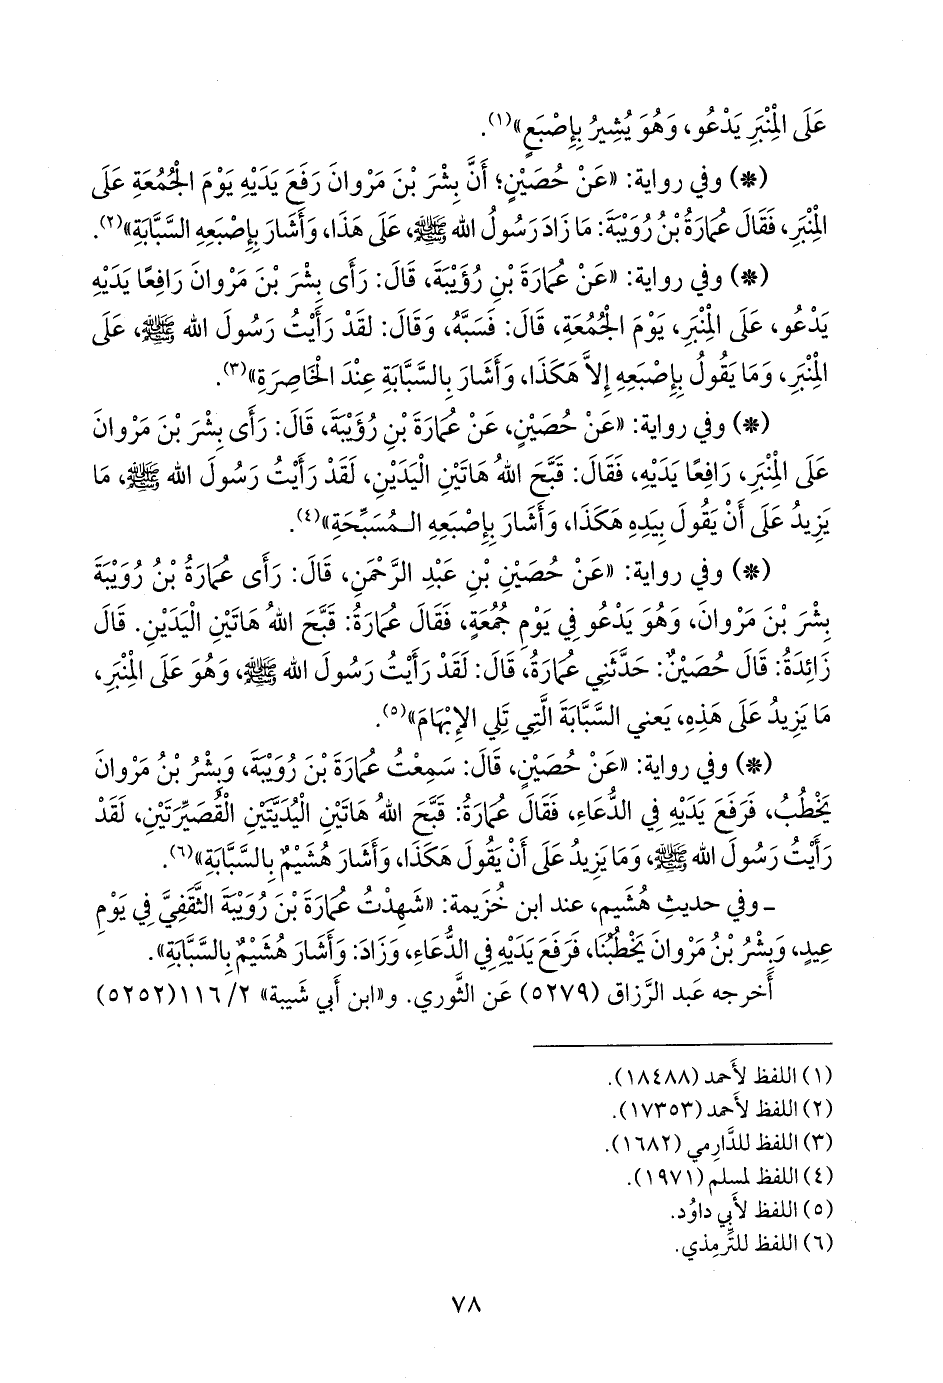 عَلَى الْمِنْبَرِ يَدْعُو، وَهُوَ يُشِيرُ بِإِصْبَعٍ»(١).
(*) وفي رواية: «عَنْ حُصَيْنٍ؛ أَنَّ بِشْرَ بْنَ مَرْوَانَ رَفَعَ يَدَيْهِ يَوْمَ الْجُمُعَةِ عَلَى
الْمِنْبَرِ، فَقَالَ عُمَارَةُ بْنُ رُوَيْبَةَ: مَا زَادَ رَسُولُ الله ﷺ، عَلَى هَذَا، وَأَشَارَ بِإِصْبَعِهِ السَّبَّابَةِ»(٢).
(*) وفي رواية: «عَنْ عُمَارَةَ بْنِ رُؤَيْبَةَ، قَالَ: رَأَى بِشْرَ بْنَ مَرْوَانَ رَافِعًا يَدَيْهِ
يَدْعُو، عَلَى الْمِنْبَرِ، يَوْمَ الْجُمُعَةِ، قَالَ: فَسَبَّهُ، وَقَالَ: لقَدْ رَأَيْتُ رَسُولَ الله ﷺ، عَلَى
الْمِنْبَرِ، وَمَا يَقُولُ بِإِصْبَعِهِ إِلاَّ هَكَذَا، وَأَشَارَ بِالسَّبَّابَةِ عِنْدَ الْخَاصِرَةِ»(٣).
(*) وفي رواية: «عَنْ حُصَيْنٍ، عَنْ عُمَارَةَ بْنِ رُؤَيْبَةَ، قَالَ: رَأَى بِشْرَ بْنَ مَرْوَانَ
عَلَى الْمِنْبَرِ، رَافِعًا يَدَيْهِ، فَقَالَ: قَبَّحَ اللهُ هَاتَيْنِ الْيَدَيْنِ، لَقَدْ رَأَيْتُ رَسُولَ الله ﷺ، مَا
يَزِيدُ عَلَى أَنْ يَقُولَ بِيَدِهِ هَكَذَا، وَأَشَارَ بِإِصْبَعِهِ الـمُسَبِّحَةِ»(٤).
(*) وفي رواية: «عَنْ حُصَيْنِ بْنِ عَبْدِ الرَّحْمَنِ، قَالَ: رَأَى عُمَارَةُ بْنُ رُوَيْبَةَ
بِشْرَ بْنَ مَرْوانَ، وَهُوَ يَدْعُو فِي يَوْمِ جُمُعَةٍ، فَقَالَ عُمَارَةُ: قَبَّحَ اللهُ هَاتَيْنِ الْيَدَيْنِ. قَالَ
زَائِدَةُ: قَالَ حُصَيْنٌ: حَدَّثَنِي عُمَارَةُ، قَالَ: لَقَدْ رَأَيْتُ رَسُولَ الله ﷺ، وَهُوَ عَلَى الْمِنْبَرِ،
مَا يَزِيدُ عَلَى هَذِهِ، يَعني السَّبَّابَةَ الَّتِي تَلِي الإِبْهَامَ»(٥).
(*) وفي رواية: «عَنْ حُصَيْنٍ، قَالَ: سَمِعْتُ عُمَارَةَ بْنَ رُوَيْبَةَ، وَبِشْرُ بْنُ مَرْوانَ
يَخْطُبُ، فَرَفَعَ يَدَيْهِ فِي الدُّعَاءِ، فَقَالَ عُمَارَةُ: قَبَّحَ اللهُ هَاتَيْنِ الْيُدَيَّتَيْنِ الْقُصَيِّرَتَيْنِ، لَقَدْ
رَأَيْتُ رَسُولَ الله ﷺ، وَمَا يَزِيدُ عَلَى أَنْ يَقُولَ هَكَذَا، وَأَشَارَ هُشَيْمٌ بِالسَّبَّابَةِ»(٦).
ـ وفي حديث هُشَيم، عند ابن خُزَيمة: «شَهِدْتُ عُمَارَةَ بْنَ رُوَيْبَةَ الثَّقَفِيَّ فِي يَوْمِ
عِيدٍ، وَبِشْرُ بْنُ مَرْوانَ يَخْطُبُنَا، فَرَفَعَ يَدَيْهِ فِي الدُّعَاءِ، وَزَادَ: وَأَشَارَ هُشَيْمٌ بِالسَّبَّابَةِ».
أَخرجه عَبد الرَّزاق (٥٢٧٩) عَن الثَّوري. و«ابن أَبي شَيبة» ٢/ ١١٦(٥٢٥٢)
(١) اللفظ لأَحمد (١٨٤٨٨).
(٢) اللفظ لأَحمد (١٧٣٥٣).
(٣) اللفظ للدَّارِمي (١٦٨٢).
(٤) اللفظ لمسلم (١٩٧١).
(٥) اللفظ لأَبي داوُد.
(٦) اللفظ للتِّرمِذي.
٧٨